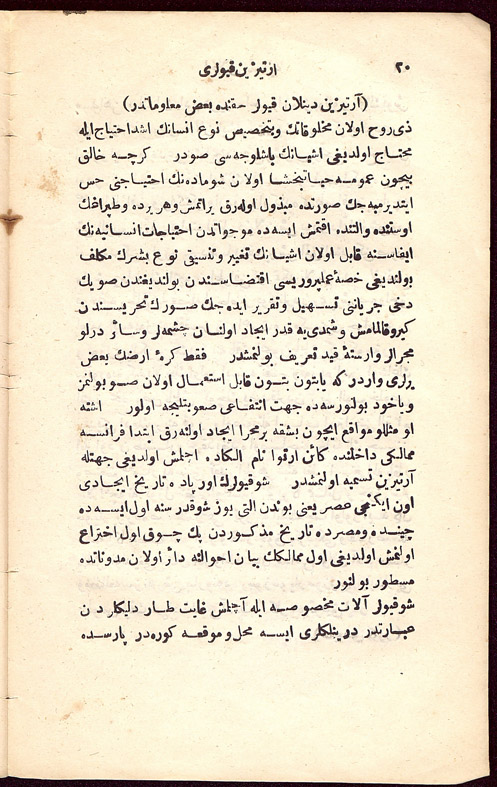 ٢٠
ارتیزین قیولری
(آرتیزین دینلان قیولر حقنده بعض معلوماتدر)
ذی روح اولان مخلوقاتك وبتخصیص نوع انسانك اشد احتیاج ایله
محتاج اولدیغی اشیانك باشلوجه سی صودر كرچه خالق
بیچون عمومه حیاتبخشا اولان شو ماده نك احتیاجنی حس
ایتدیرمیه جك صورتده مبذول اوله رق براتمش وهر یرده وطپراغك
اوستنده والتنده اقتمش ایسه ده موجوداتدن احتیاجات انسانیه نك
ایفاسنه قابل اولان اشیانك تغییر وتنسیقی نوع بشرك مكلف
بولندیغی خصهٔ عملپروریسی اقتضاسندن بولندیغندن صویك
دخی جریاننی تسهیل وتقریر ایده جك صورك تحریسندن
كیرو قالمامش وشمدی یه قدر ایجاد اولنان چشمه لر وسائر درلو
مجرالر وارستهٔ قید تعریف بولنمشدر فقط كرهٔ ارضك بعض
یرلری واردر كه یابتون بتون قابل استعمال اولان صو بولنمز
ویاخود بولنورسه ده جهت انتفاعی صعوبتلیجه اولور اشته
او مثللو مواقع ایچون بشقه بر مجرا ایجاد اولنه رق ابتدا فرانسه
ممالكی داخلنده كائن ارتوا نام الكاده اچلمش اولدیغی جهتله
آرتیزین تسمیه اولنمشدر شو قیولرك اوروپاده تاریخ ایجادی
اون ایكنجی عصر یعنی بوندن التی یوز شو قدر سنه اول ایسه ده
چینده ومصرده تاریخ مذكوردن پك چوق اول اختراع
اولنمش اولدیغی اول ممالكك بیان احوالنه دائر اولان مدوناتده
مسطور بولنور
شو قیولر آلات مخصوصه ایله آچلمش غایت طار دلیكلردن
عبارتدر درینلكلری ایسه محل وموقعه كوره در پارسده